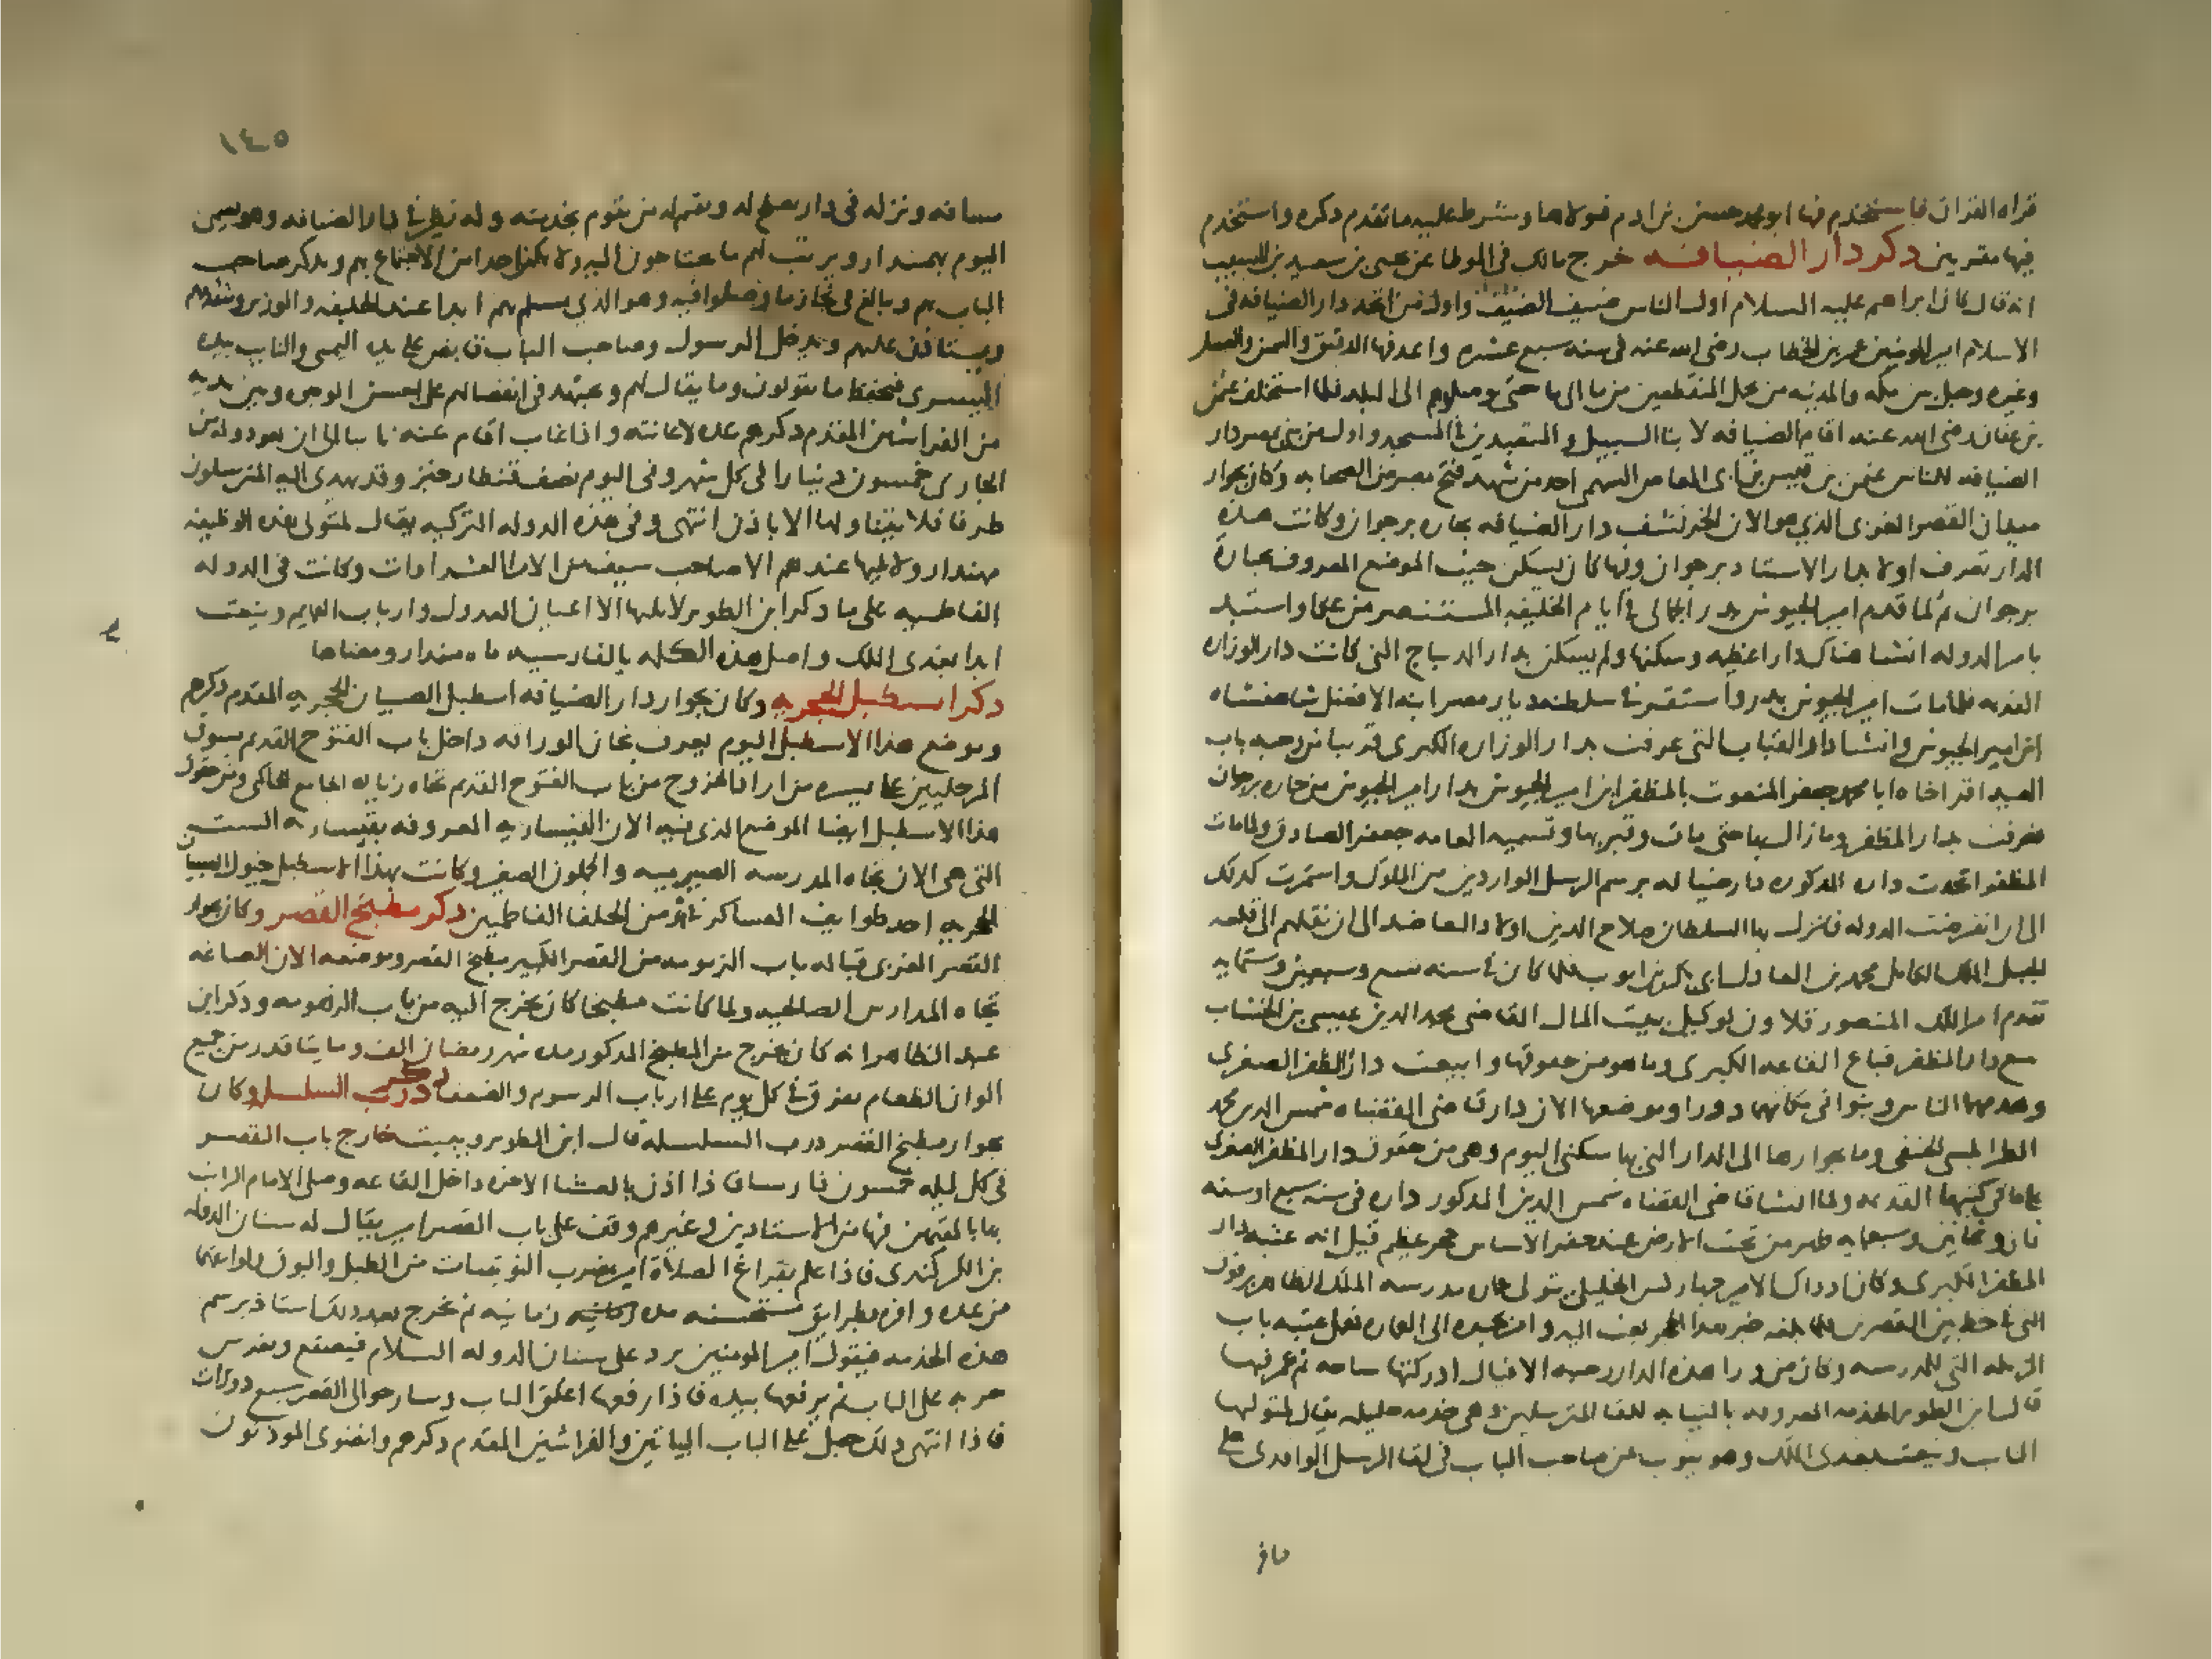 قراه القران فاستخدم فيها ابو محمد حسن بن ادم فتولاها وشرط عليه ما تقدم ذكره واستخدم
فيها مقريين ذكر دار الضيافه خرج مالك في الموطا عن يحيى بن سعيد بن المسيب
انه قال كان ابراهيم عليه السلام اول الناس ضيف الضيف واول من اتخذ دار الضيافه في
الاسلام امير المومنين عمر بن الخطاب رضي الله عنه في سنه سبع عشره واعد فيها الدقيق والسمن والعسل
وغيره وجعل بين مكه والمدينه من يحمل المنقطعين من ما الى ما حتى يوصلوهم الى البلد فلما استخلف عثمن
بن عفان رضي الله عنه اقام الضيافه لابنا السبيل والمتعبدين في المسجد واول من بنى بمصر دار
الضيافه للناس عثمن بن قيس بن ابي العاص السهمي احد من شهد فتح مصر من الصحابه وكان بجوار
ميدان القصر الغربي الذي هو الان الخرنشف دار الضيافه بحاره برجوان وكانت هذه
الدار تعرف اولا بدار الاستاد برجوان وفيها كان يسكن حيث الموضع المعروف بحارة
برجوان ثم لما قدم امير الجيوش بدر الجمالي في ايام الخليفه المستنصر من عكا واستبد
بامر الدوله انشا هناك دارا عظيمه وسكنها ولم يسكن بدار الديباج التي كانت دار الوزاره
القديمه فلما مات امير الجيوش بدر واستقر في سلطنه ديار مصر ابنه الافضل شاهنشاه
ابن امير الجيوش وانشا دار القباب التي عرفت بدار الوزاره الكبرى قريبا من رحبه باب
العيد اقر اخاه ابا محمد جعفر المنعوت بالمظفر ابن امير الجيوش بدار امير الجيوش من حاره برجوان
فعرفت بدار المظفر وما زال بها حتى مات وقبر بها وتسميه العامه جعفر الصادق ولما مات
المظفر اتخذت داره المذكوره دار ضيافه برسم الرسل الواردين من الملوك واستمرت كذلك
الى ان انقرضت الدوله فانزل بها السلطان صلاح الدين اولاد العاضد الى ان نقلهم الى قلعه
الجبل الملك الكامل محمد بن العادل ابي بكر بن ايوب فلما كان في سنه تسع وسبعين وستمايه
تقدم امر الملك المنصور قلاون لوكيل بيت المال القاضي مجد الدين عيسى بن الخشاب
ببيع دار المظفر فباع القاعه الكبرى وما هو من حقوقها وابيعت دار المظفر الصغرى
وهدمها الناس وبنوا في مكانها دورا وموضعها الان دار قاضي القضاه شمس الدين محمد
الطرابلسي الحنفي وما بجوارها الى الدار التي بها سكني اليوم وهي من حقوق دار المظفر الصغرى
على ما في كتبها القديمه ولما انشا قاضي القضاه شمس الدين المذكور داره في سنه سبع او سنه
ثمان وثمانين وسبعمايه ظهر من تحت الارض عند حفر الاساس حجر عظيم قيل انه عتبه دار
المظفر الكبرى وكان اذ ذاك الامير جهاركس الخليلي يتولى عمارة مدرسه الملك الظاهر برقوق
التي في خط بين القصرين فلما بلغه خبر هذا الحجر بعث اليه وامر بجره الى العماره فعمل عتبه باب
المزمله التي للمدرسه وكان من ورا هذه الدار رحبه الافيال ادركتها ساحه ثم عمر فيها
قال ابن الطوير الخدمه المعروفه بالنيابه للقا المترسلين وهي خدمه جليله يقال لمتوليها
الباب وينعت بعدي الملك وهو ينوب عن صاحب الباب في لقا الرسل الوافدين على
١٤٥
مسافه ونزله في دار تصلح له ويقيم له من يقوم بخدمته وله نظير في دار الضيافه وهو يسمى
اليوم بمهمندار ويرتب لهم ما يحتاجون اليه ولا يمكن احدا من الاجتماع بهم ويذكر صاحب
الباب بهم ويبالغ في نجاز ما وصلوا فيه وهو الذي يسلم بهم ابدا عند الخليفه والوزير ويتقدمهم
ويستاذن عليهم ويدخل الرسول وصاحب الباب قابض على يده اليمنى والنايب بيده
اليسرى فيحفظ ما يقولون وما يقال لهم ويجتهد في انفصالهم على احسن الوجوه وبين يديه
من الفراشين المقدم ذكرهم عده لاعانته واذا غاب اقام عنه نايبا الى ان يعود وله من
الجاري خمسون دينارا في كل شهر وفي اليوم نصف قنطار خبز وقد يهدي اليه المترسلون
طرفا فلا يتناولها الا باذن انتهى وفي هذه الدوله التركيه يقال لمتولي هذه الوظيفه
مهمندار ولا يليها عندهم الا صاحب سيف من الامرا العشراوات وكانت في الدوله
الفاطميه على ما ذكر ابن الطوير لا يليها الا اعيان العدول وارباب العمايم وينعت
ابدا بعدي الملك واصل هذه الكلمه بالفارسيه مهمندار ومعناها
ذكر اسطبل الحجريه وكان بجوار دار الضيافه اسطبل الصبيان الحجريه المقدم ذكرهم
وموضع هذا الاسطبل اليوم يعرف بخان الوراقه داخل باب الفتوح القديم بسوق
المرحليين على يسره من اراد الخروج من باب الفتوح القديم تجاه زياده الجامع الحاكمي ومن حقوق
هذا الاسطبل ايضا الموضع الذي فيه الان القيساريه المعروفه بقيساريه الست
التي هي الان تجاه المدرسه الصيرميه والجملون الصغير وكانت بهذا الاسطبل خيول الصبيان
الحجريه احد طوايف العساكر في زمن الخلفا الفاطميين ذكر مطبخ القصر وكان بجوار
القصر الغربي قباله باب الزهومه من القصر الكبير مطبخ القصر وموضعه الان الصاغه
تجاه المدارس الصالحيه ولما كانت مطبخا كان يخرج اليه من باب الزهومه وذكر ابن
عبد الظاهر انه كان يخرج من المطبخ المذكور مده شهر رمضان الف وما يتا قدر من جميع
الوان الطعام تفرق في كل يوم على ارباب الرسوم والضعفا ذكر درب السلسله وكان
بجوار مطبخ القصر درب السلسله قال ابن الطوير ويبيت خارج باب القصر
في كل ليله خمسون فارسا فاذا اذن بالعشا الاخره داخل القاعه وصلى الامام الراتب
بها بالمقيمين فيها من الاستادين وغيرهم وقف على باب القصر امير يقال له سنان الدوله
بن الكركندي فاذا علم بفراغ الصلاة امر بضرب النوبتيات من الطبل والبوق وتوابعهما
من عده وافره بطرايق مستحسنه مده زمانيه ثم يخرج بعد ذلك استاذ برسم
هذه الخدمه فيقول امير المومنين يرد على سنان الدوله السلام فيصقع ويغرس
حربه على الباب ثم يرفعها بيده فاذا رفعها اغلق الباب وسار حوالى القصر سبع دورات
فاذا انتهى ذلك جعل على الباب البياتين والفراشين المقدم ذكرهم وانضوى الموذنون